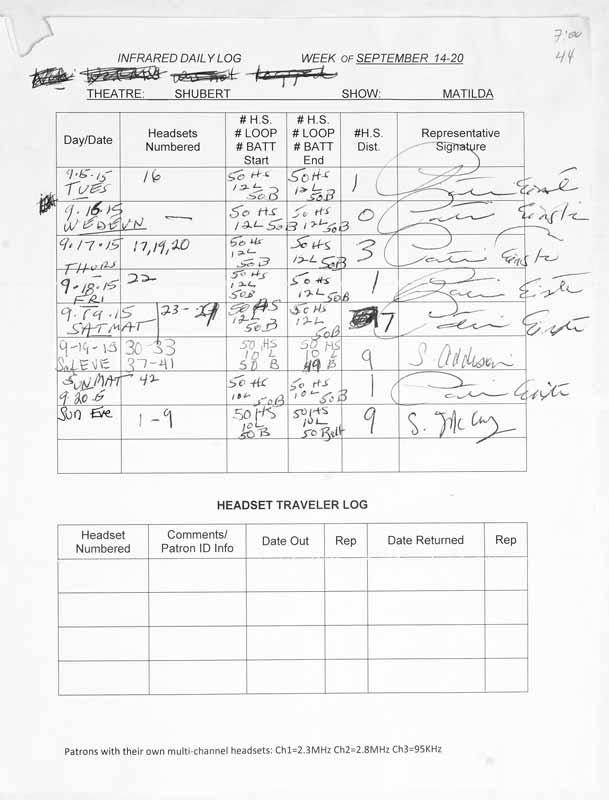 7:00
44
INFRARED DAILY LOG WEEK OF SEPTEMBER 14-20
THEATRE: SHUBERT SHOW: MATILDA
Day/Date Headsets Numbered # H.S. # LOOP # BATT Start # H.S. # LOOP # BATT End #H.S. Dist. Representative Signature
TUES 16 50 HS 12L 50B 50 HS 12L 50B 1
9.16.15 — 50 HS 12L 50B 50 HS 12L 50B 0
9.17.15 THURS 17,19,20 50 HS 12L 50B 50 HS 12L 50B 3
9.18.15 FRI 22 50 HS 12L 50B 50 HS 12L 50B 1
9.19.15 SATMAT 23-29 50 HS 12L 50B 50 HS 12L 50B 7
9-19-15 Sat EVE 30-33 37-41 50 HS 10L 50 B 50 HS 10L 49 B 9 S. Addison
SUNMAT 42 50 HS 10L 50B 50 HS 10L 50B 1
Sun Eve 1-9 50 HS 10L 50B 50 HS 10L 50 9 S.
HEADSET TRAVELER LOG
Headset Numbered Comments/ Patron ID Info Date Out Rep Date Returned Rep
Patrons with their own multi-channel headsets: Ch1=2.3MHz Ch2=2.8MHz Ch3=95KHz